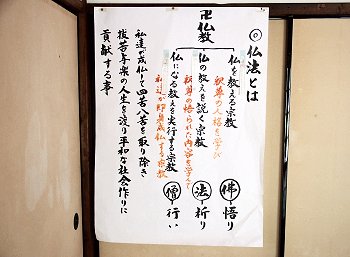 ◎仏法とは
卍仏教
仏を教える宗教
釈尊の人格を学び
佛 悟り
仏の教えを説く宗教
釈尊の悟られた内容を学んで
法 祈り
仏になる教えを実行する宗教
私達が即身成仏する宗教
僧 行い
私達が成仏して四苦八苦を取り除き
抜苦与楽の人生を渡り平和な社会作りに
貢献する事